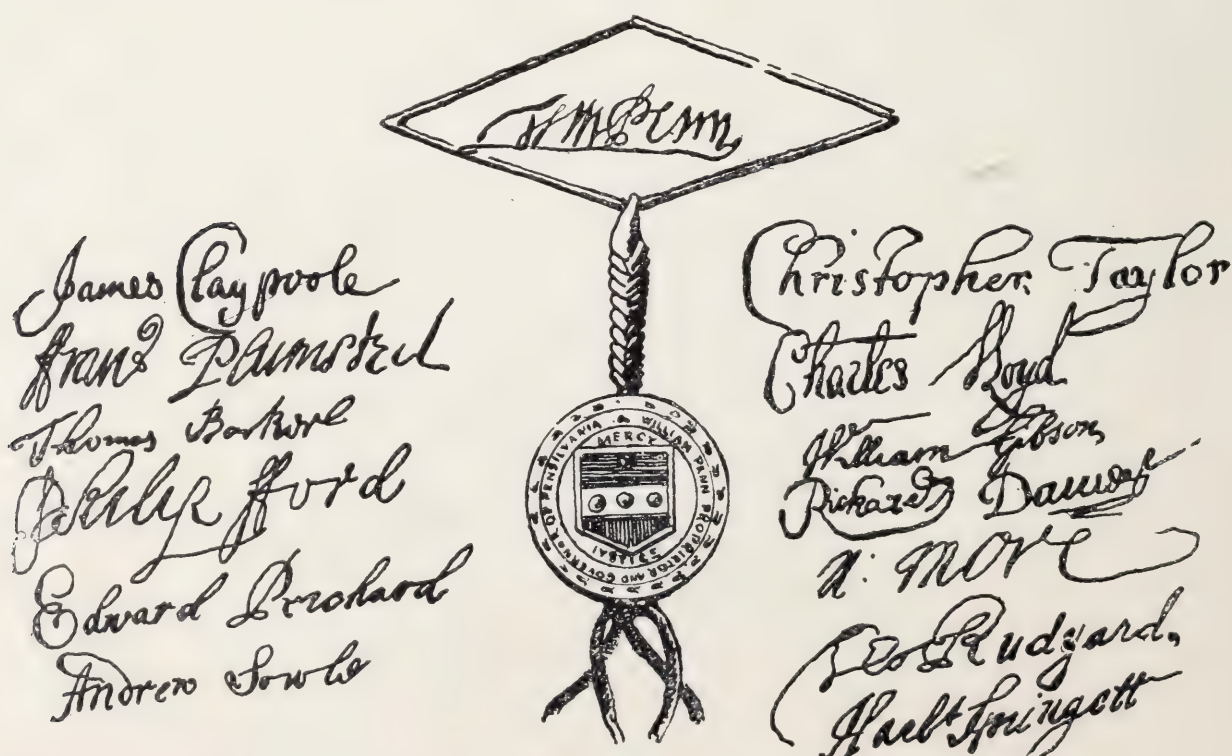 Wm Penn
James Claypoole
ffrans Plumsted
Thomas Barkere
Philip fford
Edward Prichard
Andrew Sowle
MERCY
WILLIAM PENN PROPRIETOR AND GOVERNOR OF PENSILVANIA
Christopher Taylor
Charles Lloyd
William Gibson
Richard Davies
N: More
Rudyard
Harbt Springett